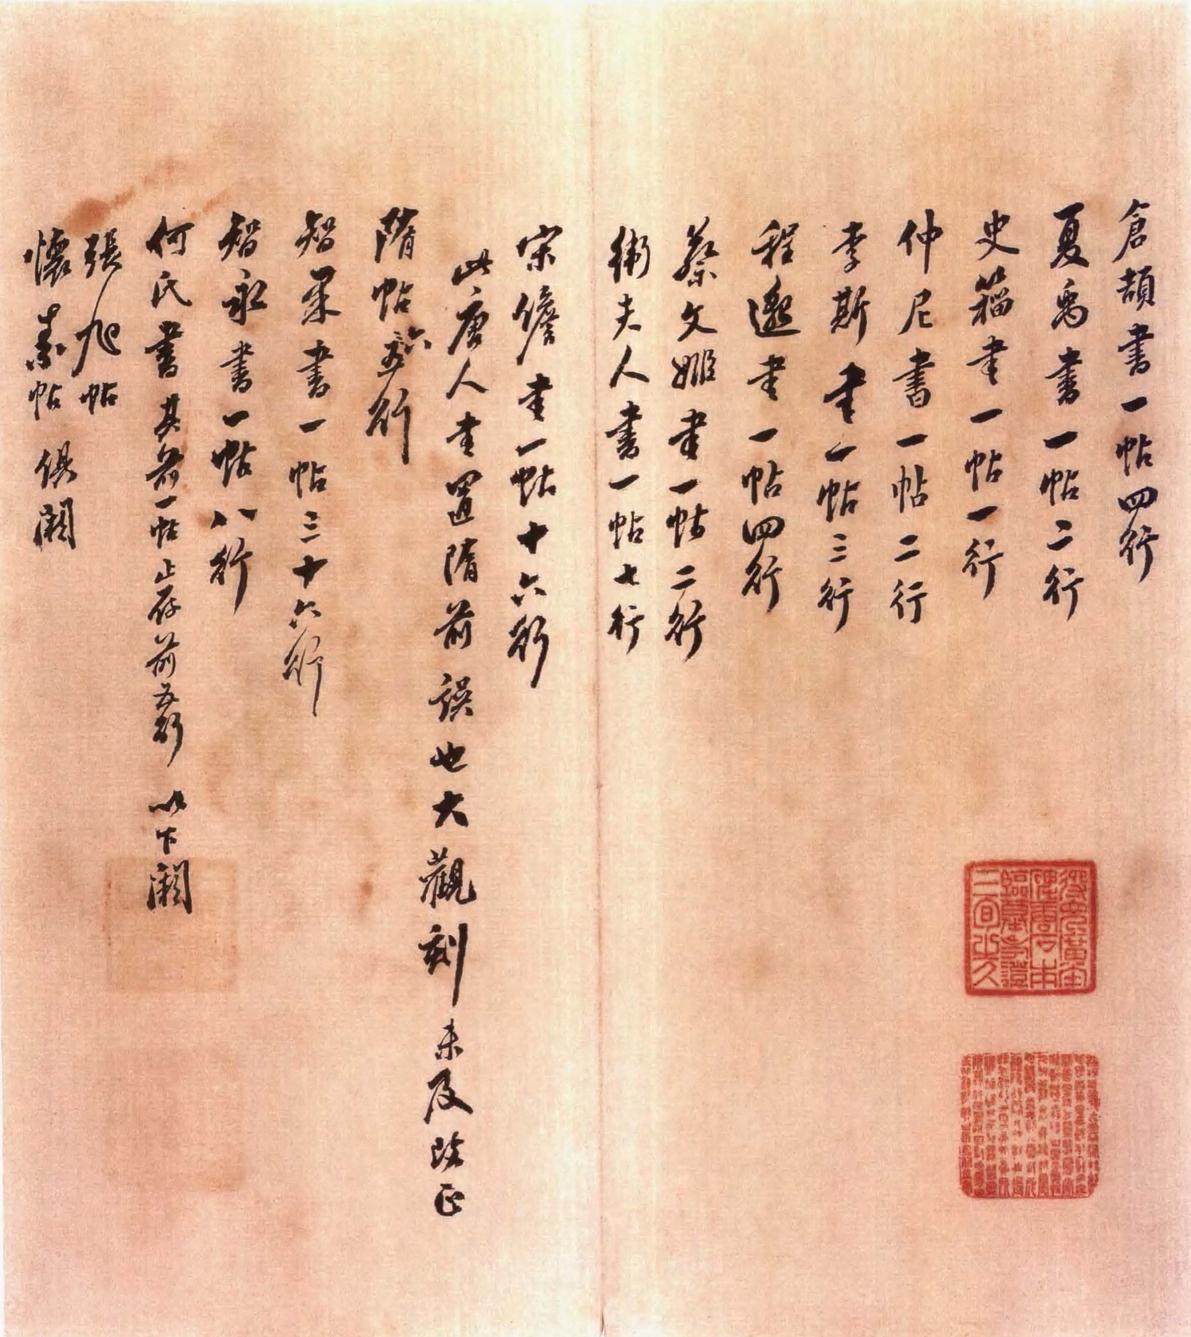 倉頡書一帖四行
夏禹書一帖二行
史籀書一帖一行
仲尼書一帖二行
李斯書一帖三行
程邈書一帖四行
蔡文姬書一帖二行
衛夫人書一帖七行
宋儋書一帖十六行
此唐人書置隋前誤也大觀刻未及改正
隋帖六行
智果書一帖三十六行
智永書一帖八行
何氏書其前一帖止存前五行 以下闕
張旭帖
懷素帖 俱闕